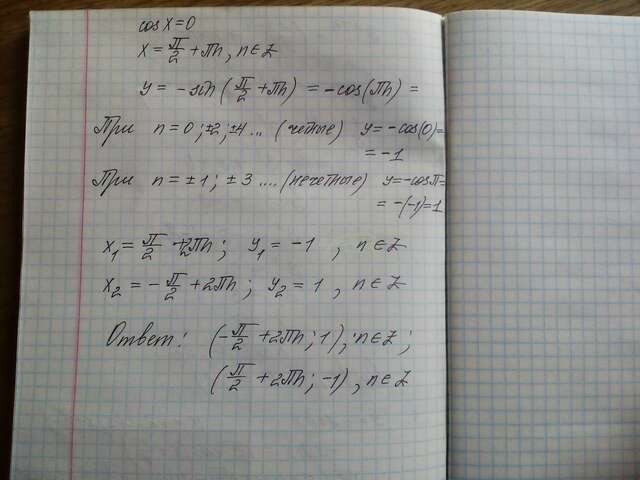 cos x = 0
x = π/2 + πn, n ∈ Z
y = -sin(π/2 + πn) = -cos(πn) =
При n = 0; ±2; ±4... (четные) y = -cos(0) =
= -1
При n = ±1; ±3.... (нечетные) y = -cos π =
= -(-1) = 1
x₁ = π/2 + 2πn; y₁ = -1, n ∈ Z
x₂ = -π/2 + 2πn; y₂ = 1, n ∈ Z
Ответ: (-π/2 + 2πn; 1), n ∈ Z;
(π/2 + 2πn; -1), n ∈ Z